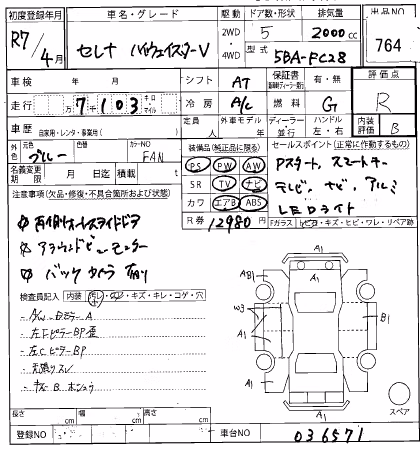 初度登録年月 車名・グレード 駆動 ドア数・形状 排気量 出品NO
R7/4月 セレナ ハイウェイスターV 2WD・4WD 5 2000cc 764
型式 5BA-FC28
車検 年 月 シフト AT 保証書 有・無 評価点
走行 万7千103キロ マイル 冷房 A/C 燃料 G R
車歴 自家用・レンタ・事業用( ) 定員 人 外車モデル 年 ディーラー 並行 ハンドル 左・右 内装評価 B
外色 元色 ブルー 色替 カラーNO FAN 装備品(純正品に限る) セールスポイント(正常に動作するもの)
名義変更期限 月 日迄 積載 t PS PW AW Pスタート、スマートキー
注意事項(欠品・修復・不具合箇所および状態) SR TV ナビ テレビ、ナビ、アルミ
カワ エアB ABS LEDライト
R券 12980円 Fガラス トビ石・キズ・ヒビ・ワレ・リペア跡
両側オートスライドドア
アラウンドビューモニター
バックカメラ有り
検査員記入 内装 汚レ・コゲ・キズ・キレ・コゲ・穴
左CピラーBP
天張りスレ
A1
AB1
W3
A1
A1
B1
A1
スペア
長さ cm 幅 cm 高さ cm
登録NO 車台NO 036571